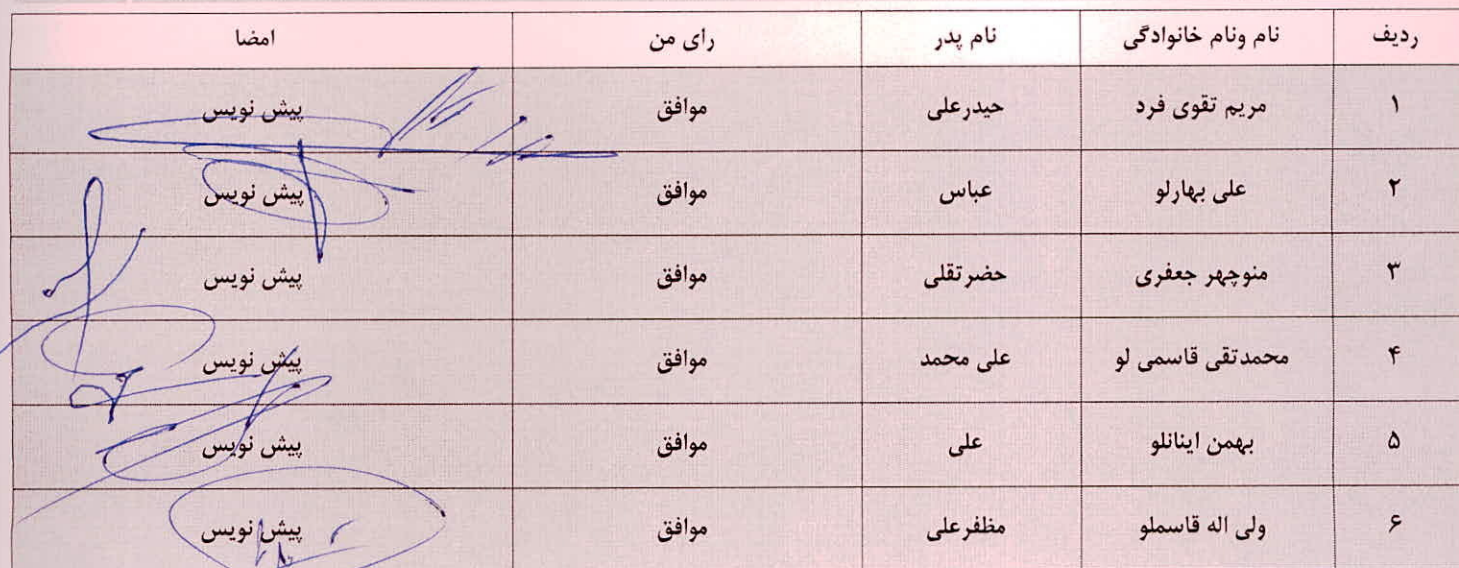 ردیف نام ونام خانوادگی نام پدر رای من امضا
۱ مریم تقوی فرد حیدرعلی موافق پیش نویس
۲ علی بهارلو عباس موافق پیش نویس
۳ منوچهر جعفری حضرتقلی موافق پیش نویس
۴ محمدتقی قاسمی لو علی محمد موافق پیش نویس
۵ بهمن اینانلو علی موافق پیش نویس
۶ ولی اله قاسملو مظفرعلی موافق پیش نویس